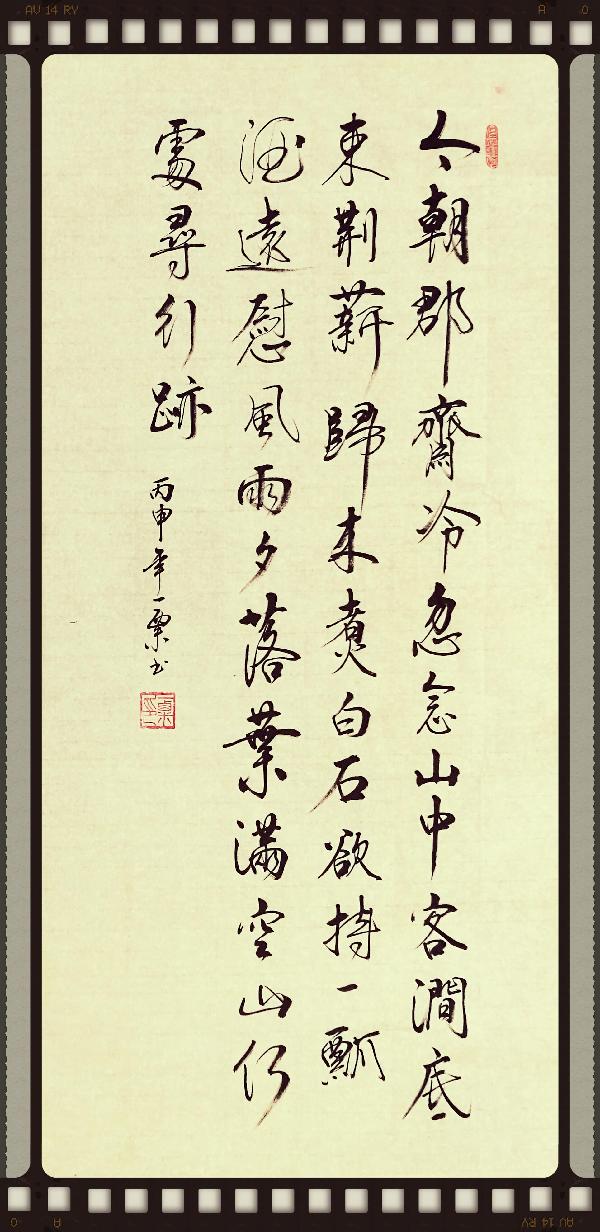 AV 14 RV
A
0
今朝郡齋冷忽念山中客澗底
束荆薪歸来煮白石欲持一瓢
酒遠慰風雨夕落葉滿空山何
處尋行跡
丙申年一粟书
0
A
AV 14 RV